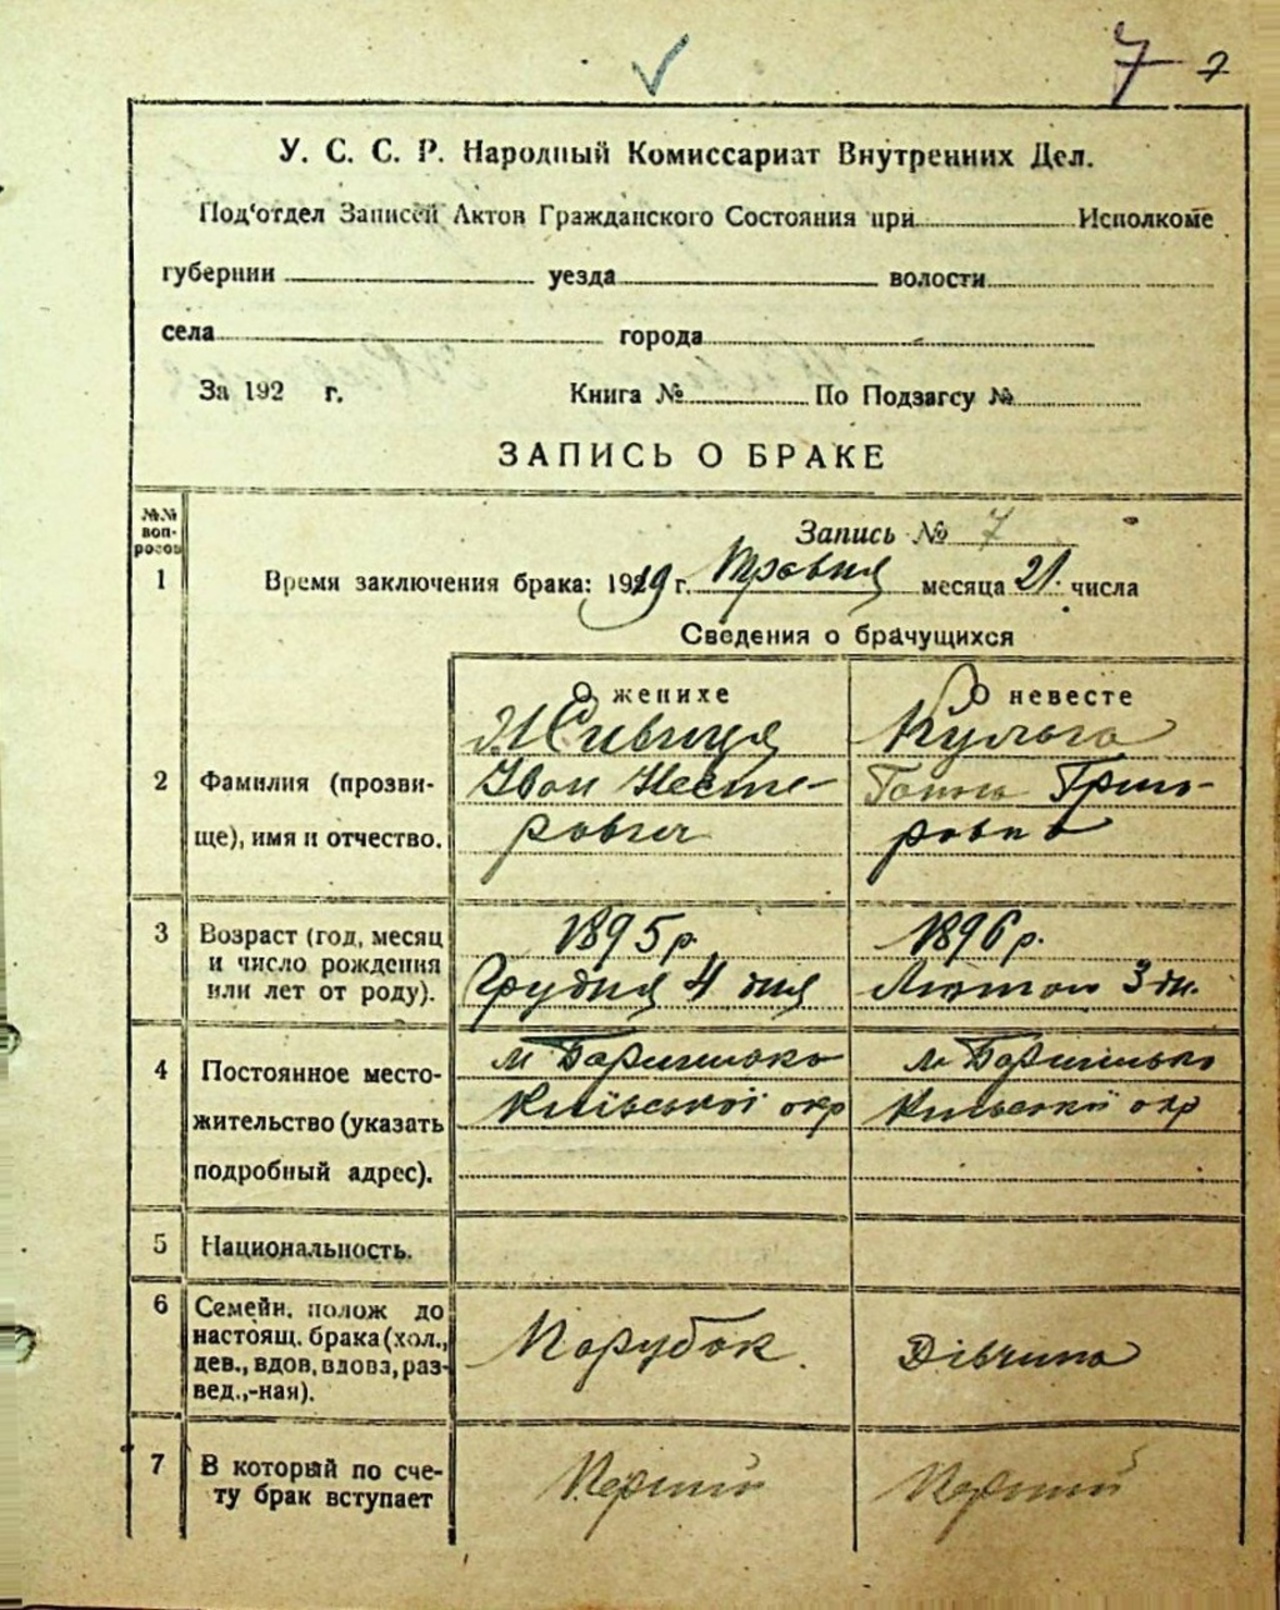 7 7
У. С. С. Р. Народный Комиссариат Внутренних Дел.
Под‘отдел Записей Актов Гражданского Состояния при Исполкоме
губернии уезда волости
села города
За 192 г. Книга № По Подзагсу №
ЗАПИСЬ О БРАКЕ
№№ воп-
росов
Запись № 7
1 Время заключения брака: 1919 г. Травня месяца 21 числа
Сведения о брачущихся
О женихе О невесте
Кулога
2 Фамилия (прозви- Іван Несте- Ганна Григо-
ще), имя и отчество. рович ровна
3 Возраст (год, месяц 1895 р. 1896 р.
и число рождения
или лет от роду). Грудня 4 дня Лютого 3 дн.
4 Постоянное место- м Баришівка м Баришівка
жительство (указать Київської окр Київської окр
подробный адрес).
5 Национальность.
6 Семейн. полож до
настоящ. брака (хол., Парубок. Дівчина
дев., вдов, вдова, раз-
вед.,-ная).
7 В который по сче- Перший Перший
ту брак вступает